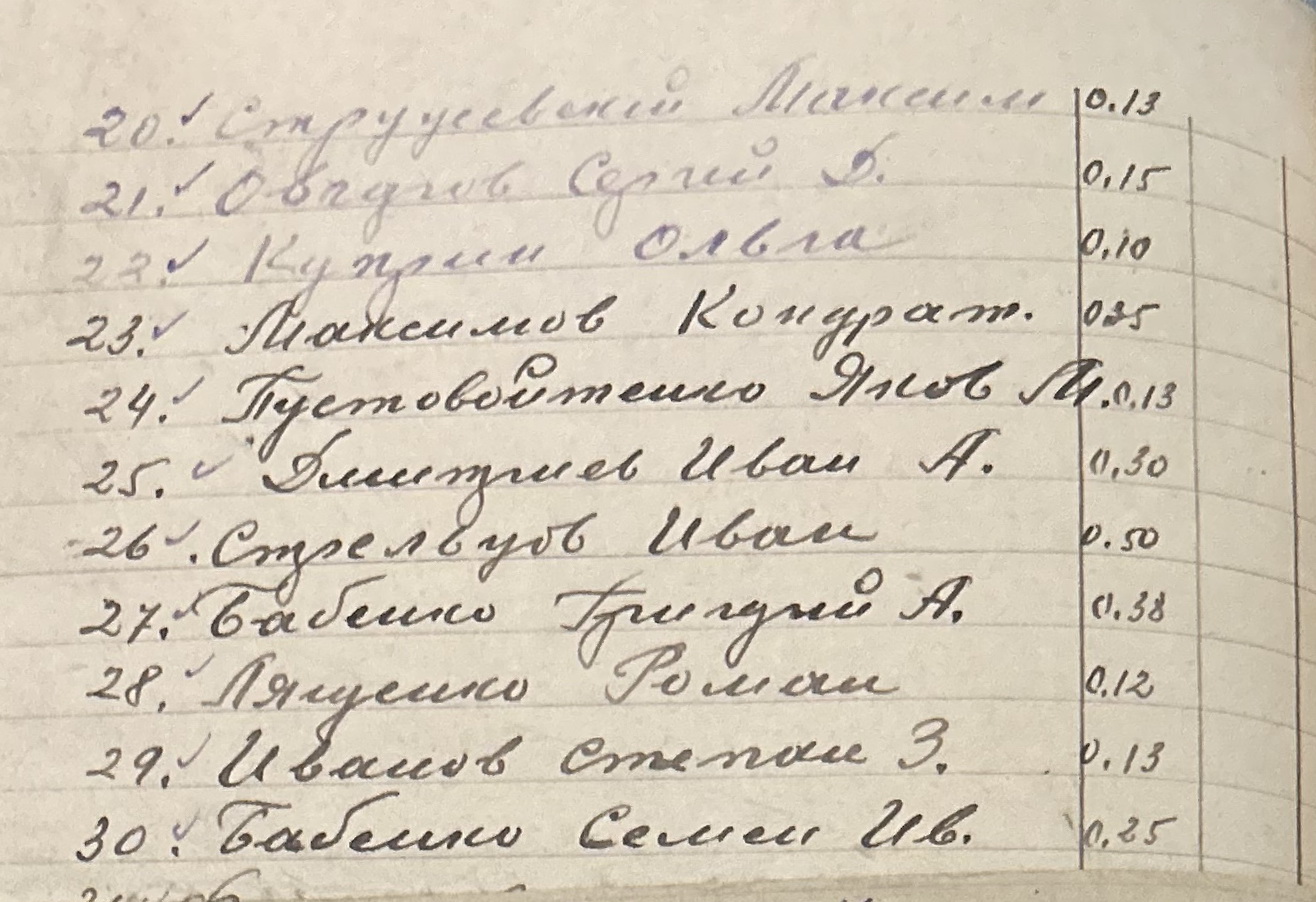 20. Струцевский Максим 0.13
21. Сергий Д. 0.15
22. Куприн Ольга 0.10
23. Максимов Кондрат. 025
24. Пустовойтенко Яков М. 0.13
25. Дмитриев Иван А. 0.30
26. Стрельцов Иван 0.50
27. Бабенко Григорий А. 0.38
28. Ляшенко Роман 0.12
29. Иванов Степан З. 0.13
30. Бабенко Семен Ив. 0.25